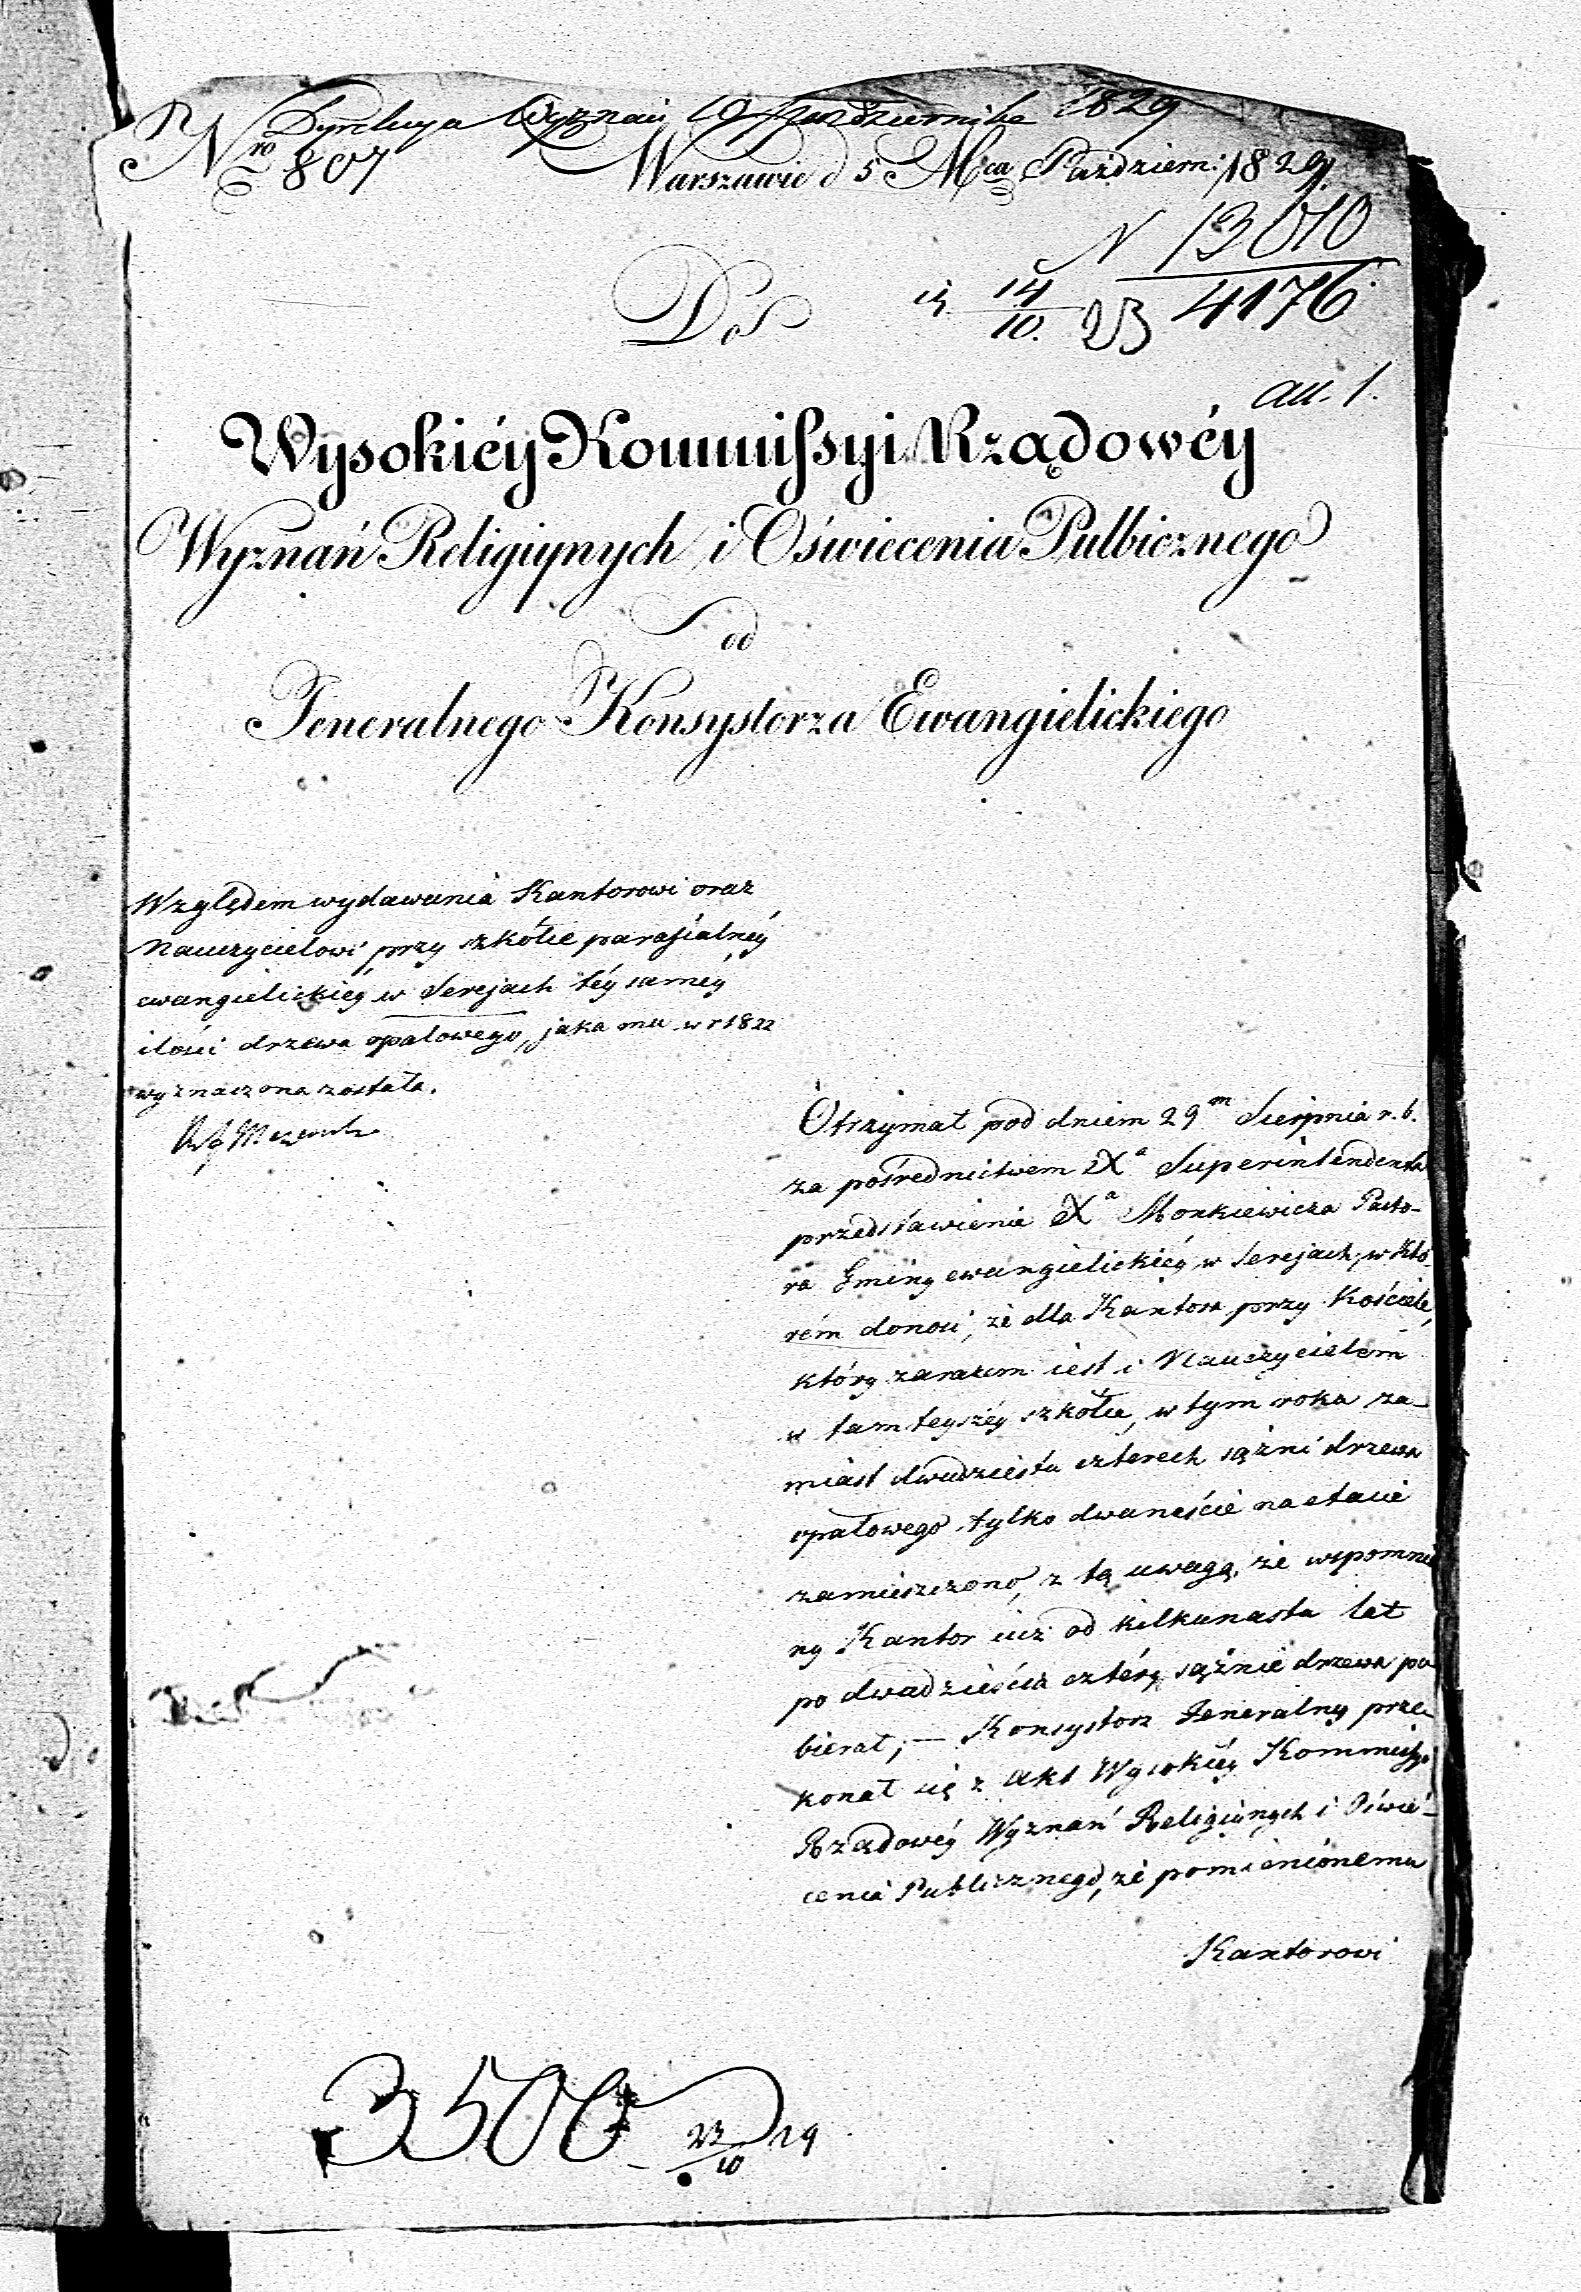 Dyrekcya Wyznań 10 Października 1829
Nro 807
Warszawie d 5 Mca Paździem: 1829.
N 13010
4176
14
10. 23
all. 1.
Do
Wysokiéy Kommissyi Rządowéy
Wyznań Religiynych i Oświecenia Pulbicznego
od
Jeneralnego Konsystorza Ewangielickiego
Względem wydawania Kantorowi oraz
Nauczycielowi przy szkólie parafialnéy
ewangielickiéy w Serejach téy saméy
ilości drzewa opałowego, jaka mu w r 1822
wyznaczona została.
Otrzymał pod dniem 29m Sierpnia r. b.
za pośrednictwem Xa Superintendenta
przedstawienie Xa Monkiewicza Pasto-
ra Gminy ewangielickiéy w Serejach, w któ-
rém donosi, że dla Kantora przy Kościele,
który zarazem iest i Nauczycielem
w tamteyszéy szkólie, w tym roku za-
miast dwudziestu czterech sążni drzewa
opałowego tylko dwanaście na etacie
zamieszczono, z tą uwagą, że wspomnio
ny Kantor iuż od kilkunastu lat
po dwadzieścia cztéry sążnie drzewa po
bierał; — Konsystorz Jeneralny prze-
konał się z Akt Wysokiéy Kommissyi
Rządowéy Wyznań Religiynych i Oświe-
cenia Publicznego, że pomienionemu
Kantorowi
3500
23
10 29